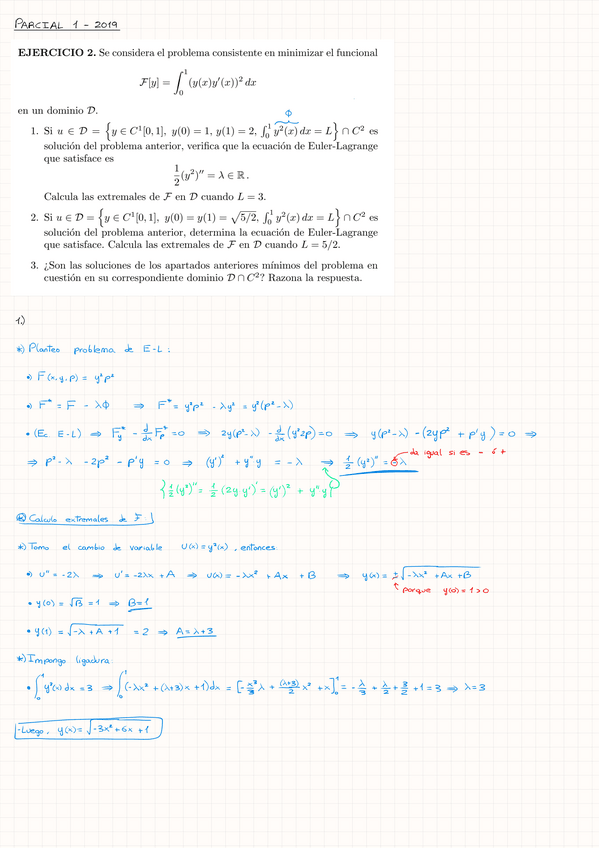 PARCIAL 1 - 2019
EJERCICIO 2. Se considera el problema consistente en minimizar el funcional
F[y] = ∫₀¹ (y(x)y′(x))² dx
en un dominio D.
Φ
1. Si u ∈ D = {y ∈ C¹[0,1], y(0) = 1, y(1) = 2, ∫₀¹ y²(x) dx = L} ∩ C² es
solución del problema anterior, verifica que la ecuación de Euler-Lagrange
que satisface es
1/2 (y²)″ = λ ∈ ℝ.
Calcula las extremales de F en D cuando L = 3.
2. Si u ∈ D = {y ∈ C¹[0,1], y(0) = y(1) = √5/2, ∫₀¹ y²(x) dx = L} ∩ C² es
solución del problema anterior, determina la ecuación de Euler-Lagrange
que satisface. Calcula las extremales de F en D cuando L = 5/2.
3. ¿Son las soluciones de los apartados anteriores mínimos del problema en
cuestión en su correspondiente dominio D ∩ C²? Razona la respuesta.
1.)
*) Planteo problema de E-L :
•) F(x,y,p) = y²p²
•) F* = F - λΦ ⇒ F* = y²p² - λy² = y²(p²-λ)
• (Ec E-L) ⇒ F*y - d/dx F*p = 0 ⇒ 2y(p²-λ) - d/dx (y²2p) = 0 ⇒ y(p²-λ) - (2yp² + p'y²) = 0 ⇒
⇒ p²-λ - 2p² - p'y = 0 ⇒ (y')² + y"y = -λ ⇒ 1/2 (y²)" = -λ da igual si es - ó +
{1/2 (y²)" = 1/2 (2y y')' = (y')² + y"y}
*) Calculo extremales de F
*) Tomo el cambio de variable U(x) = y²(x), entonces:
•) U" = -2λ ⇒ U' = -2λx + A ⇒ U(x) = -λx² + Ax + B ⇒ y(x) = ±√-λx² + Ax + B
porque y(0) = 1 > 0
• y(0) = √B = 1 ⇒ B = 1
• y(1) = √-λ + A + 1 = 2 ⇒ A = λ+3
*) Impongo ligadura:
• ∫₀¹ y²(x) dx = 3 ⇒ ∫₀¹ (-λx² + (λ+3)x + 1) dx = [-x³/3 λ + (λ+3)/2 x² + x]₀¹ = -λ/3 + λ/2 + 3/2 + 1 = 3 ⇒ λ = 3
- Luego, y(x) = √-3x² + 6x + 1